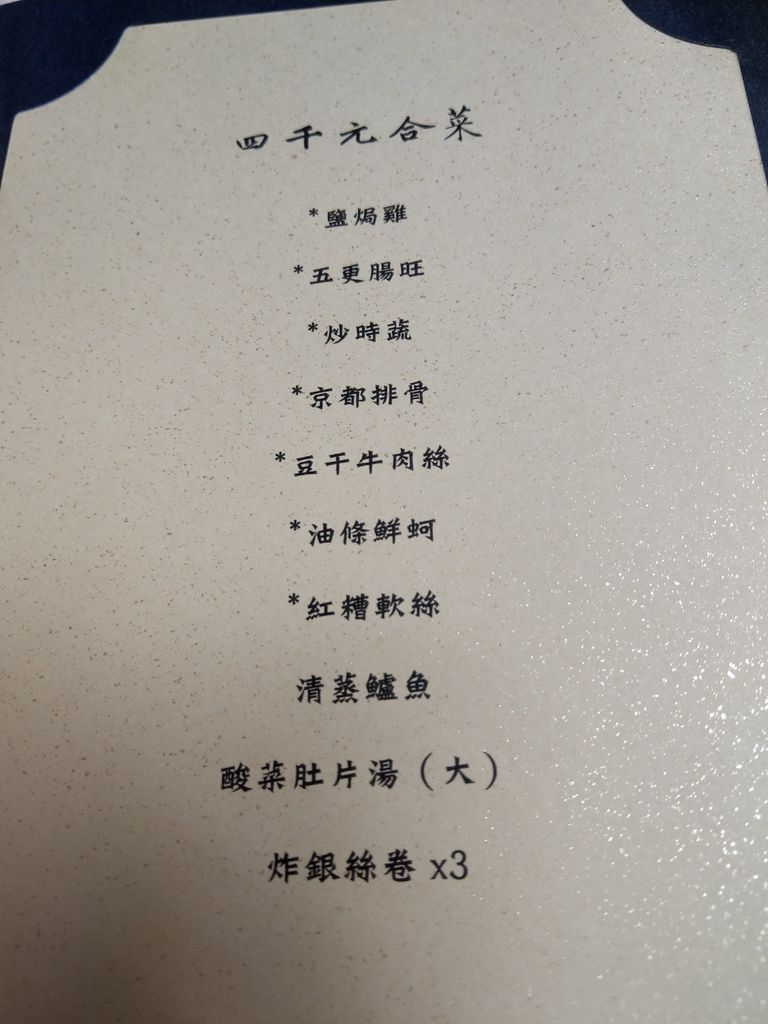 四千元合菜
*鹽焗雞
*五更腸旺
*炒時蔬
*京都排骨
*豆干牛肉絲
*油條鮮蚵
*紅糟軟絲
清蒸鱸魚
酸菜肚片湯（大）
炸銀絲卷 x3